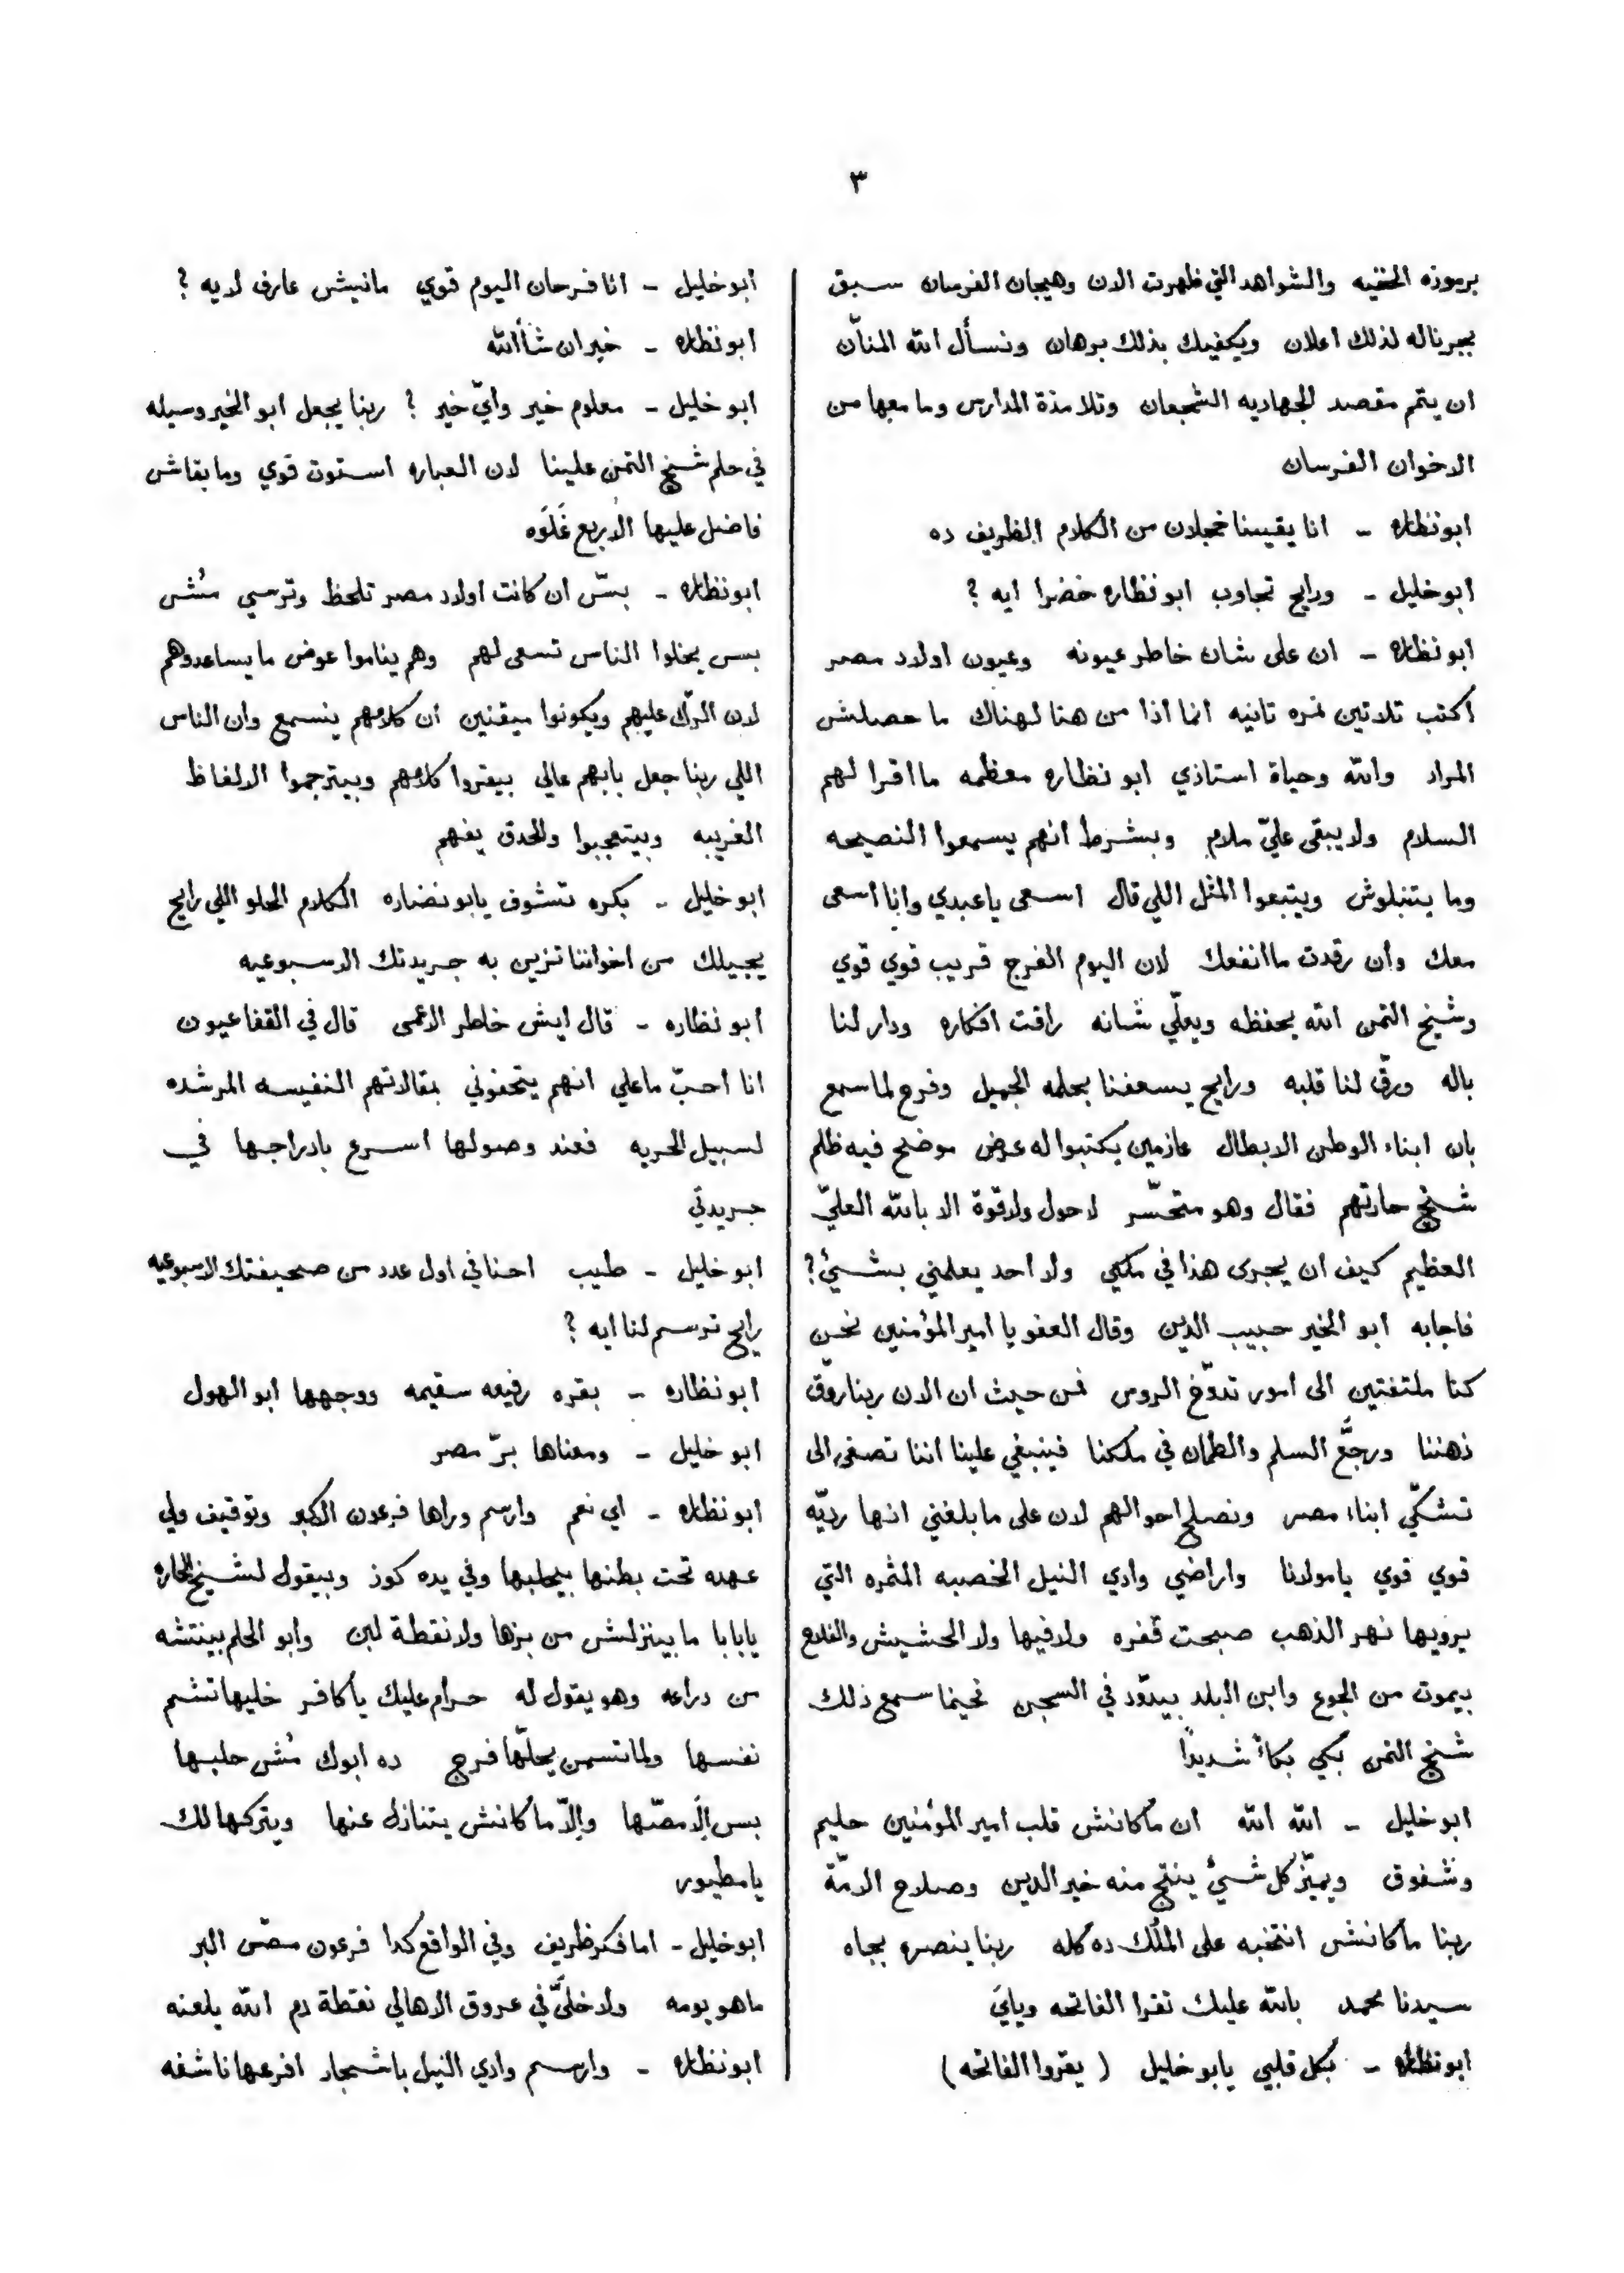 ٣
برموزه الخفيه والشواهد التي ظهرت الان وهيجان الفرسان سبق
بجرناله لذلك اعلان ويكفيك بذلك برهان ونسأل الله المنّان
ان يتم مقصد الجهاديه الشجعان وتلامذة المدارس وما معها من
الاخوان الفرسان
ابونظاره - انا يقينا خجلان من الكلام الظريف ده
ابوخليل - ورايح تجاوب ابونظاره خضرا ايه ؟
ابونظاره - ان على شان خاطر عيونه وعيون اولاد مصر
اكتب تلاتين نمره تانيه انما اذا من هنا لهناك ما حصلش
المراد والله وحياة استاذي ابو نظاره معظمه ما اقرا لهم
السلام ولا يبقى عليّ ملام وبشرط انهم يسمعوا النصيحه
وما يتنبلوش ويتبعوا المثل اللي قال اسعى ياعبدي وانا اسعى
معك وأن رقدت ما انفعك لان اليوم الفرج قريب قوي قوي
وشيخ التمن الله يحفظه ويعلّي شانه راقت افكاره ودار لنا
باله ورقّ لنا قلبه ورايح يسعفنا بحلمه الجميل وفرح لما سمع
بان ابناء الوطن الابطال عازمين يكتبوا له عرض موضح فيه ظلم
شيخ حارتهم فقال وهو متحسّر لا حول ولا قوة الا بالله العليّ
العظيم كيف ان يجرى هذا في ملكي ولا احد يعلمني بشيئ ؟
فاجابه ابو الخير حبيب الدين وقال العفو يا امير المؤمنين نحن
كنا ملتفتين الى امور تدوّخ الروس فمن حيث ان الان ربنا روّق
ذهننا ورجّع السلم والطمان في ملكنا فينبغي علينا اننا نصغى الى
تشكّي ابناء مصر ونصلح احوالهم لان على ما بلغني انها رديّه
قوي قوي يامولانا واراضي وادي النيل الخصبه المثمره التي
يرويها نهر الذهب صبحت قفره ولا فيها ولا الحشيش والفلاح
بيموت من الجوع وابن البلد بيدوّد في السجن فحينما سمع ذلك
شيخ التمن بكي بكاءً شديداً
ابوخليل - الله الله ان ماكانش قلب امير المؤمنين حليم
وشفوق ويميّز كل شيئ ينتج منه خير الدين وصلاح الامّة
ربنا ماكانش انتخبه على المُلك ده كله ربنا ينصره بجاه
سيدنا محمد بالله عليك تقرا الفاتحه وياي
ابونظاره - بكل قلبي يابوخليل ( يقروا الفاتحه )
ابوخليل - انا فرحان اليوم قوي مانيش عارف لايه ؟
ابونظاره - خير ان شأالله
ابوخليل - معلوم خير وايّ خير ؟ ربنا يجعل ابو الخير وسيله
في حلم شيخ التمن علينا لان العباره استوت قوي وما بقاش
فاضل عليها الا ربع غَلوَه
ابونظاره - بسّ ان كانت اولاد مصر تلحظ وترسي مُش
بس يخلوا الناس تسعى لهم وهم يناموا عوض ما يساعدوهم
لان الدّرك عليهم ويكونوا ميقنين ان كلامهم ينسمع وان الناس
اللي ربنا جعل بابهم عالي بيقروا كلامهم وبيترجموا الالفاظ
الغريبه وبيتعجبوا والحدق يفهم
ابوخليل - بكره تشوف يابونضاره الكلام الحلو اللي رايح
يجيلك من اخواننا تزين به جريدتك الاسبوعيه
ابونظاره - قال ايش خاطر الاعمى قال في القفا عيون
انا احبّ ماعلي انهم يتحفوني بمقالاتهم النفيسه المرشده
لسبيل الحريه فعند وصولها اسرع بادراجها في
جريدتي
ابوخليل - طيب احنا في اول عدد من صحيفتك الاسبوعيه
رايح ترسم لنا ايه ؟
ابونظاره - بقره رفيعه سقيمه ووجهها ابو الهول
ابوخليل - ومعناها برّ مصر
ابونظاره - اي نعم وارسم وراها فرعون الكبير وتوفيق ولي
عهده تحت بطنها بيحلبها وفي يده كوز وبيقول لشيخ الحاره
يابابا ما بينزلش من بزها ولا نقطة لبن وابو الحلم بينتشه
من دراعه وهو يقول له حرام عليك ياكافر خليها تشم
نفسها ولما تسمن يحلّها فرج ده ابوك مُش حلبها
بس إلّا مصّها وإلّا ماكانش يتنازل عنها ويتركها لك
يا مطيور
ابوخليل - اما فكر ظريف وفي الواقع كدا فرعون مصّ البر
ماهو بومه ولا خلّى في عروق الاهالي نقطة دم الله يلعنه
ابونظاره - وارسم وادي النيل باشجار افرعها ناشفه